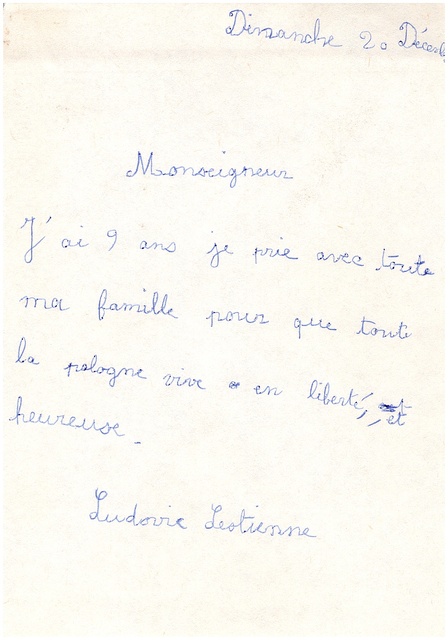 Dimanche 20 Décemb
Monseigneur
J'ai 9 ans je prie avec toute
ma famille pour que toute
la pologne vive en liberté, et
heureuse.
Ludovic Leotienne